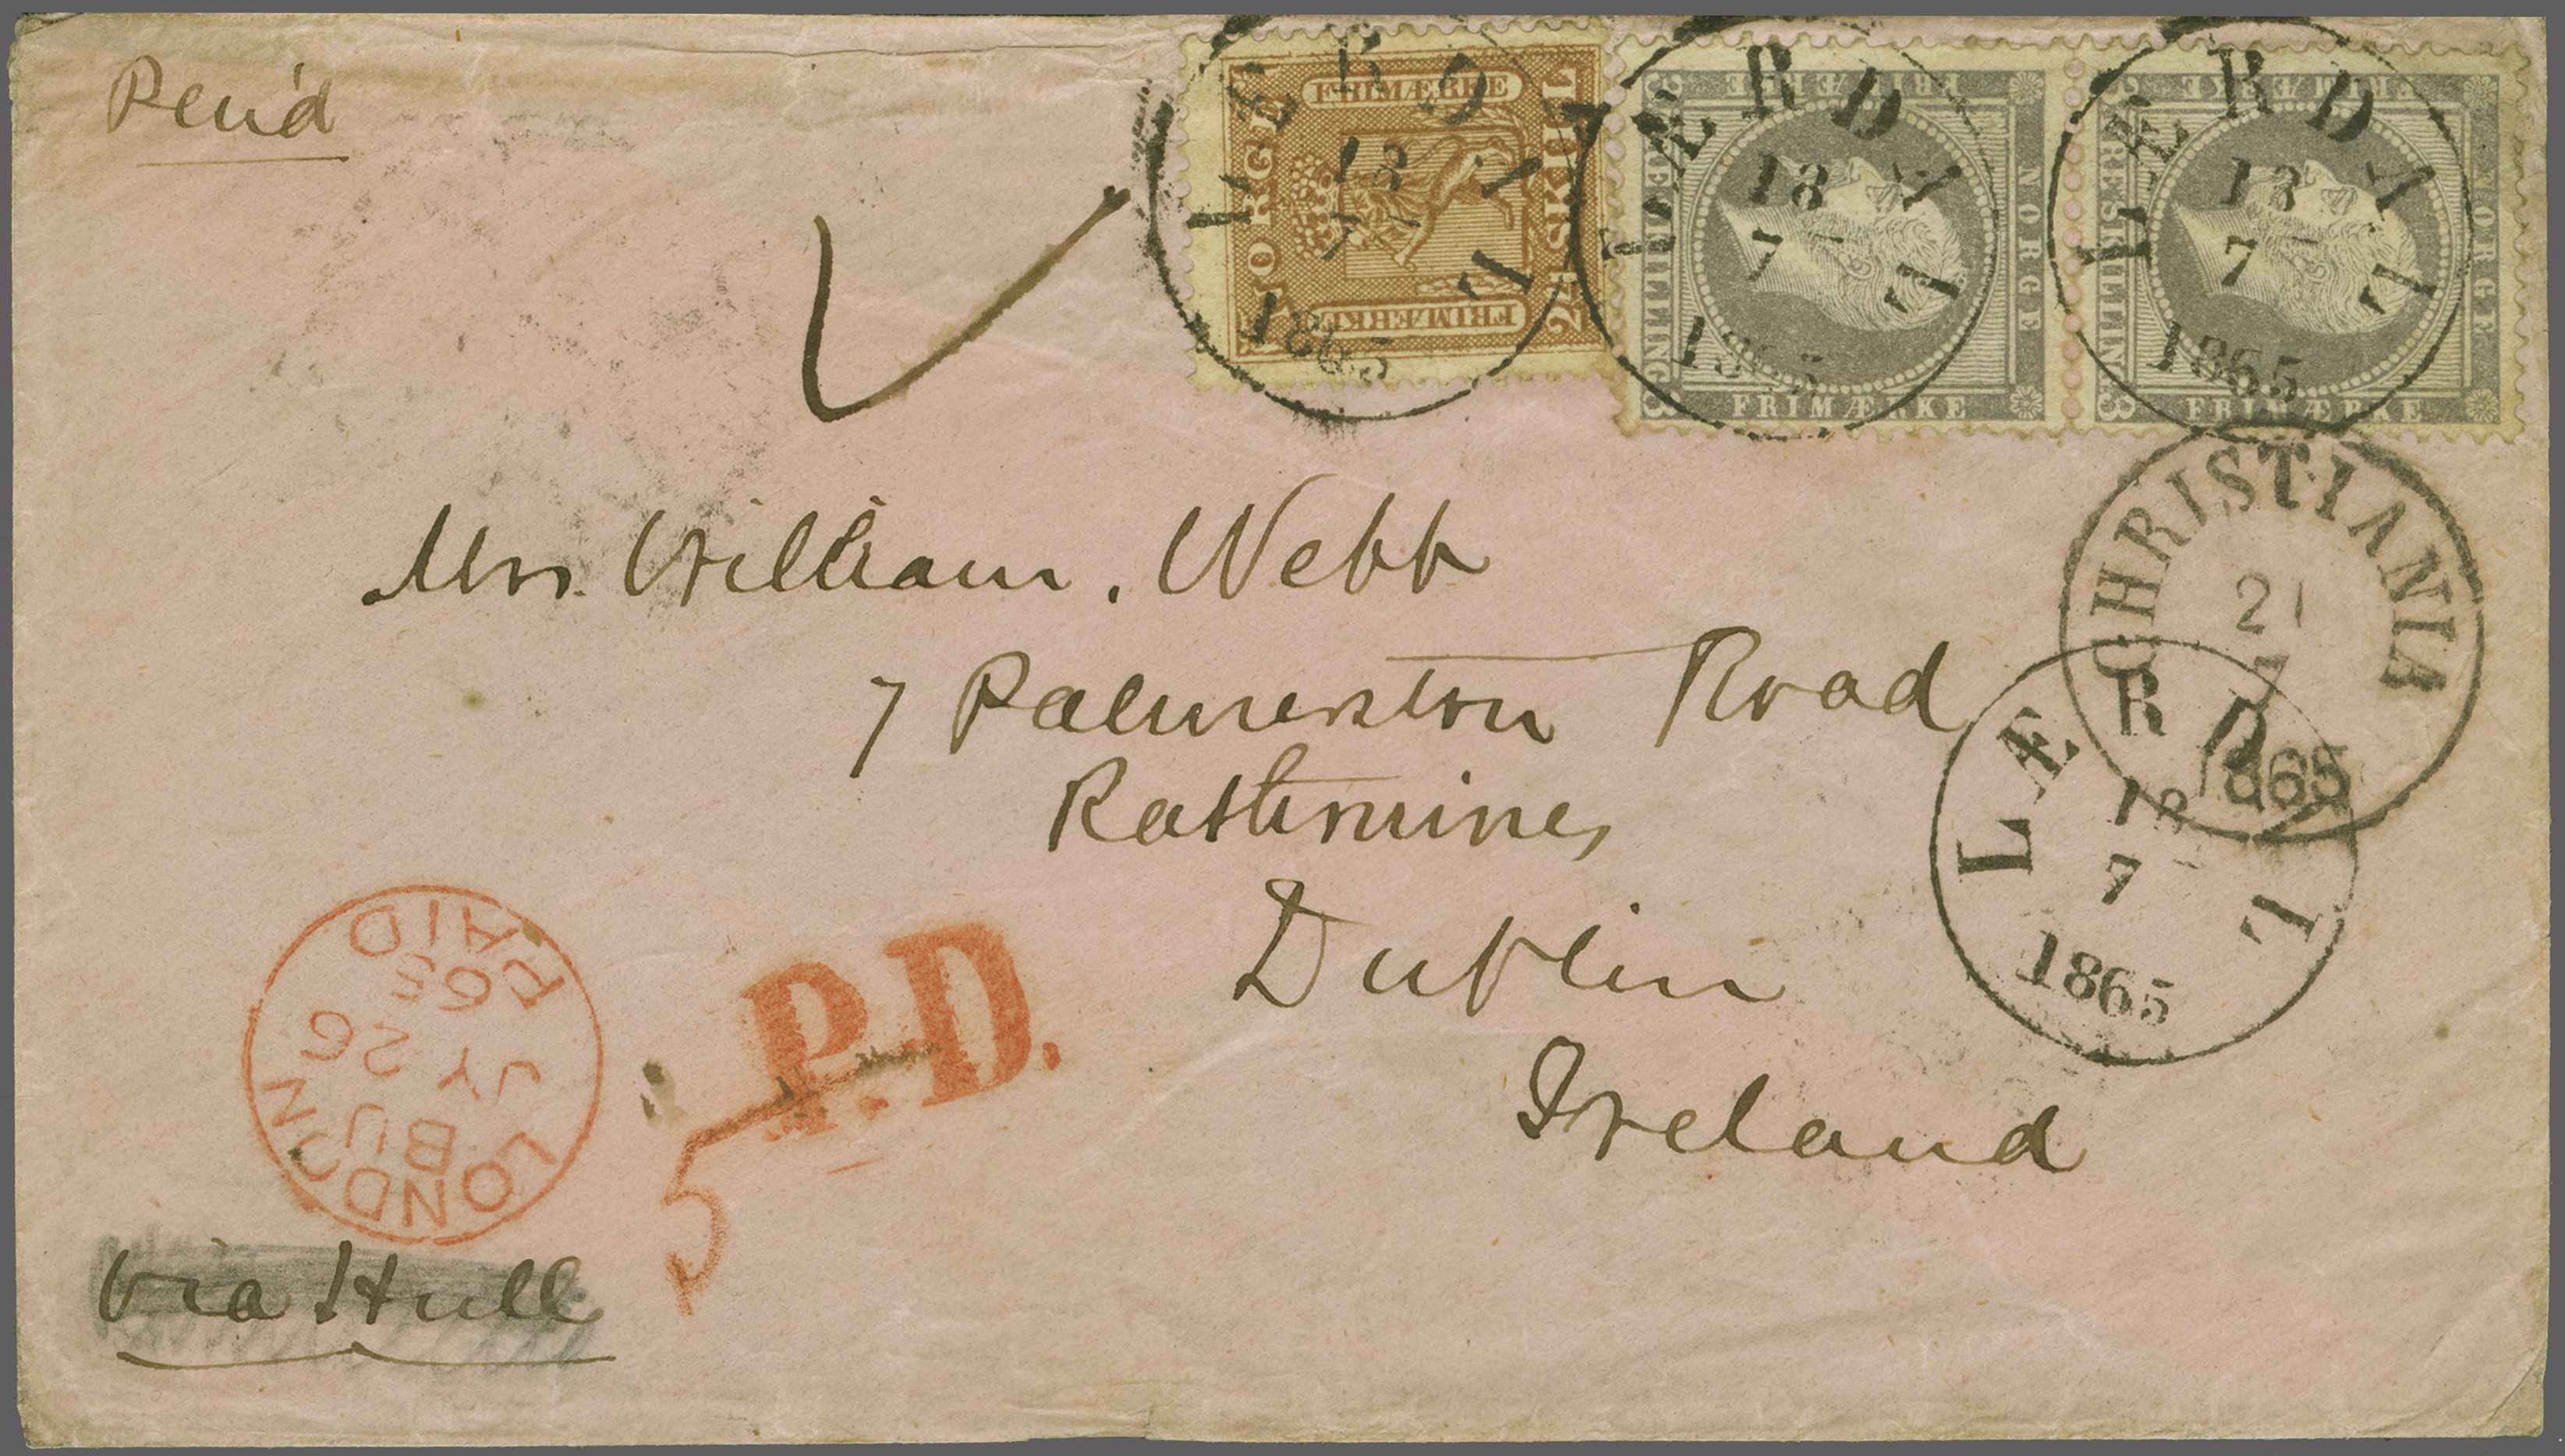 Pr'd
NORGE
FRIMÆRKE
FRIMÆRKE
24 SKILL.
3 FRIMÆRKE
NORGE
TRE SKILLING
3 FRIMÆRKE
3 FRIMÆRKE
NORGE
TRE SKILLING
3 FRIMÆRKE
LÆRDAL
18
7
1865
LÆRDAL
18
7
1865
LÆRDAL
18
7
1865
CHRISTIANIA
21
7
1865
Mrs. William. Webb
7 Palmerston Road
Rathmines
Dublin
Ireland
LÆRDAL
18
7
1865
LONDON
BU
JY 26
65
PAID
P.D.
5
Via Hull